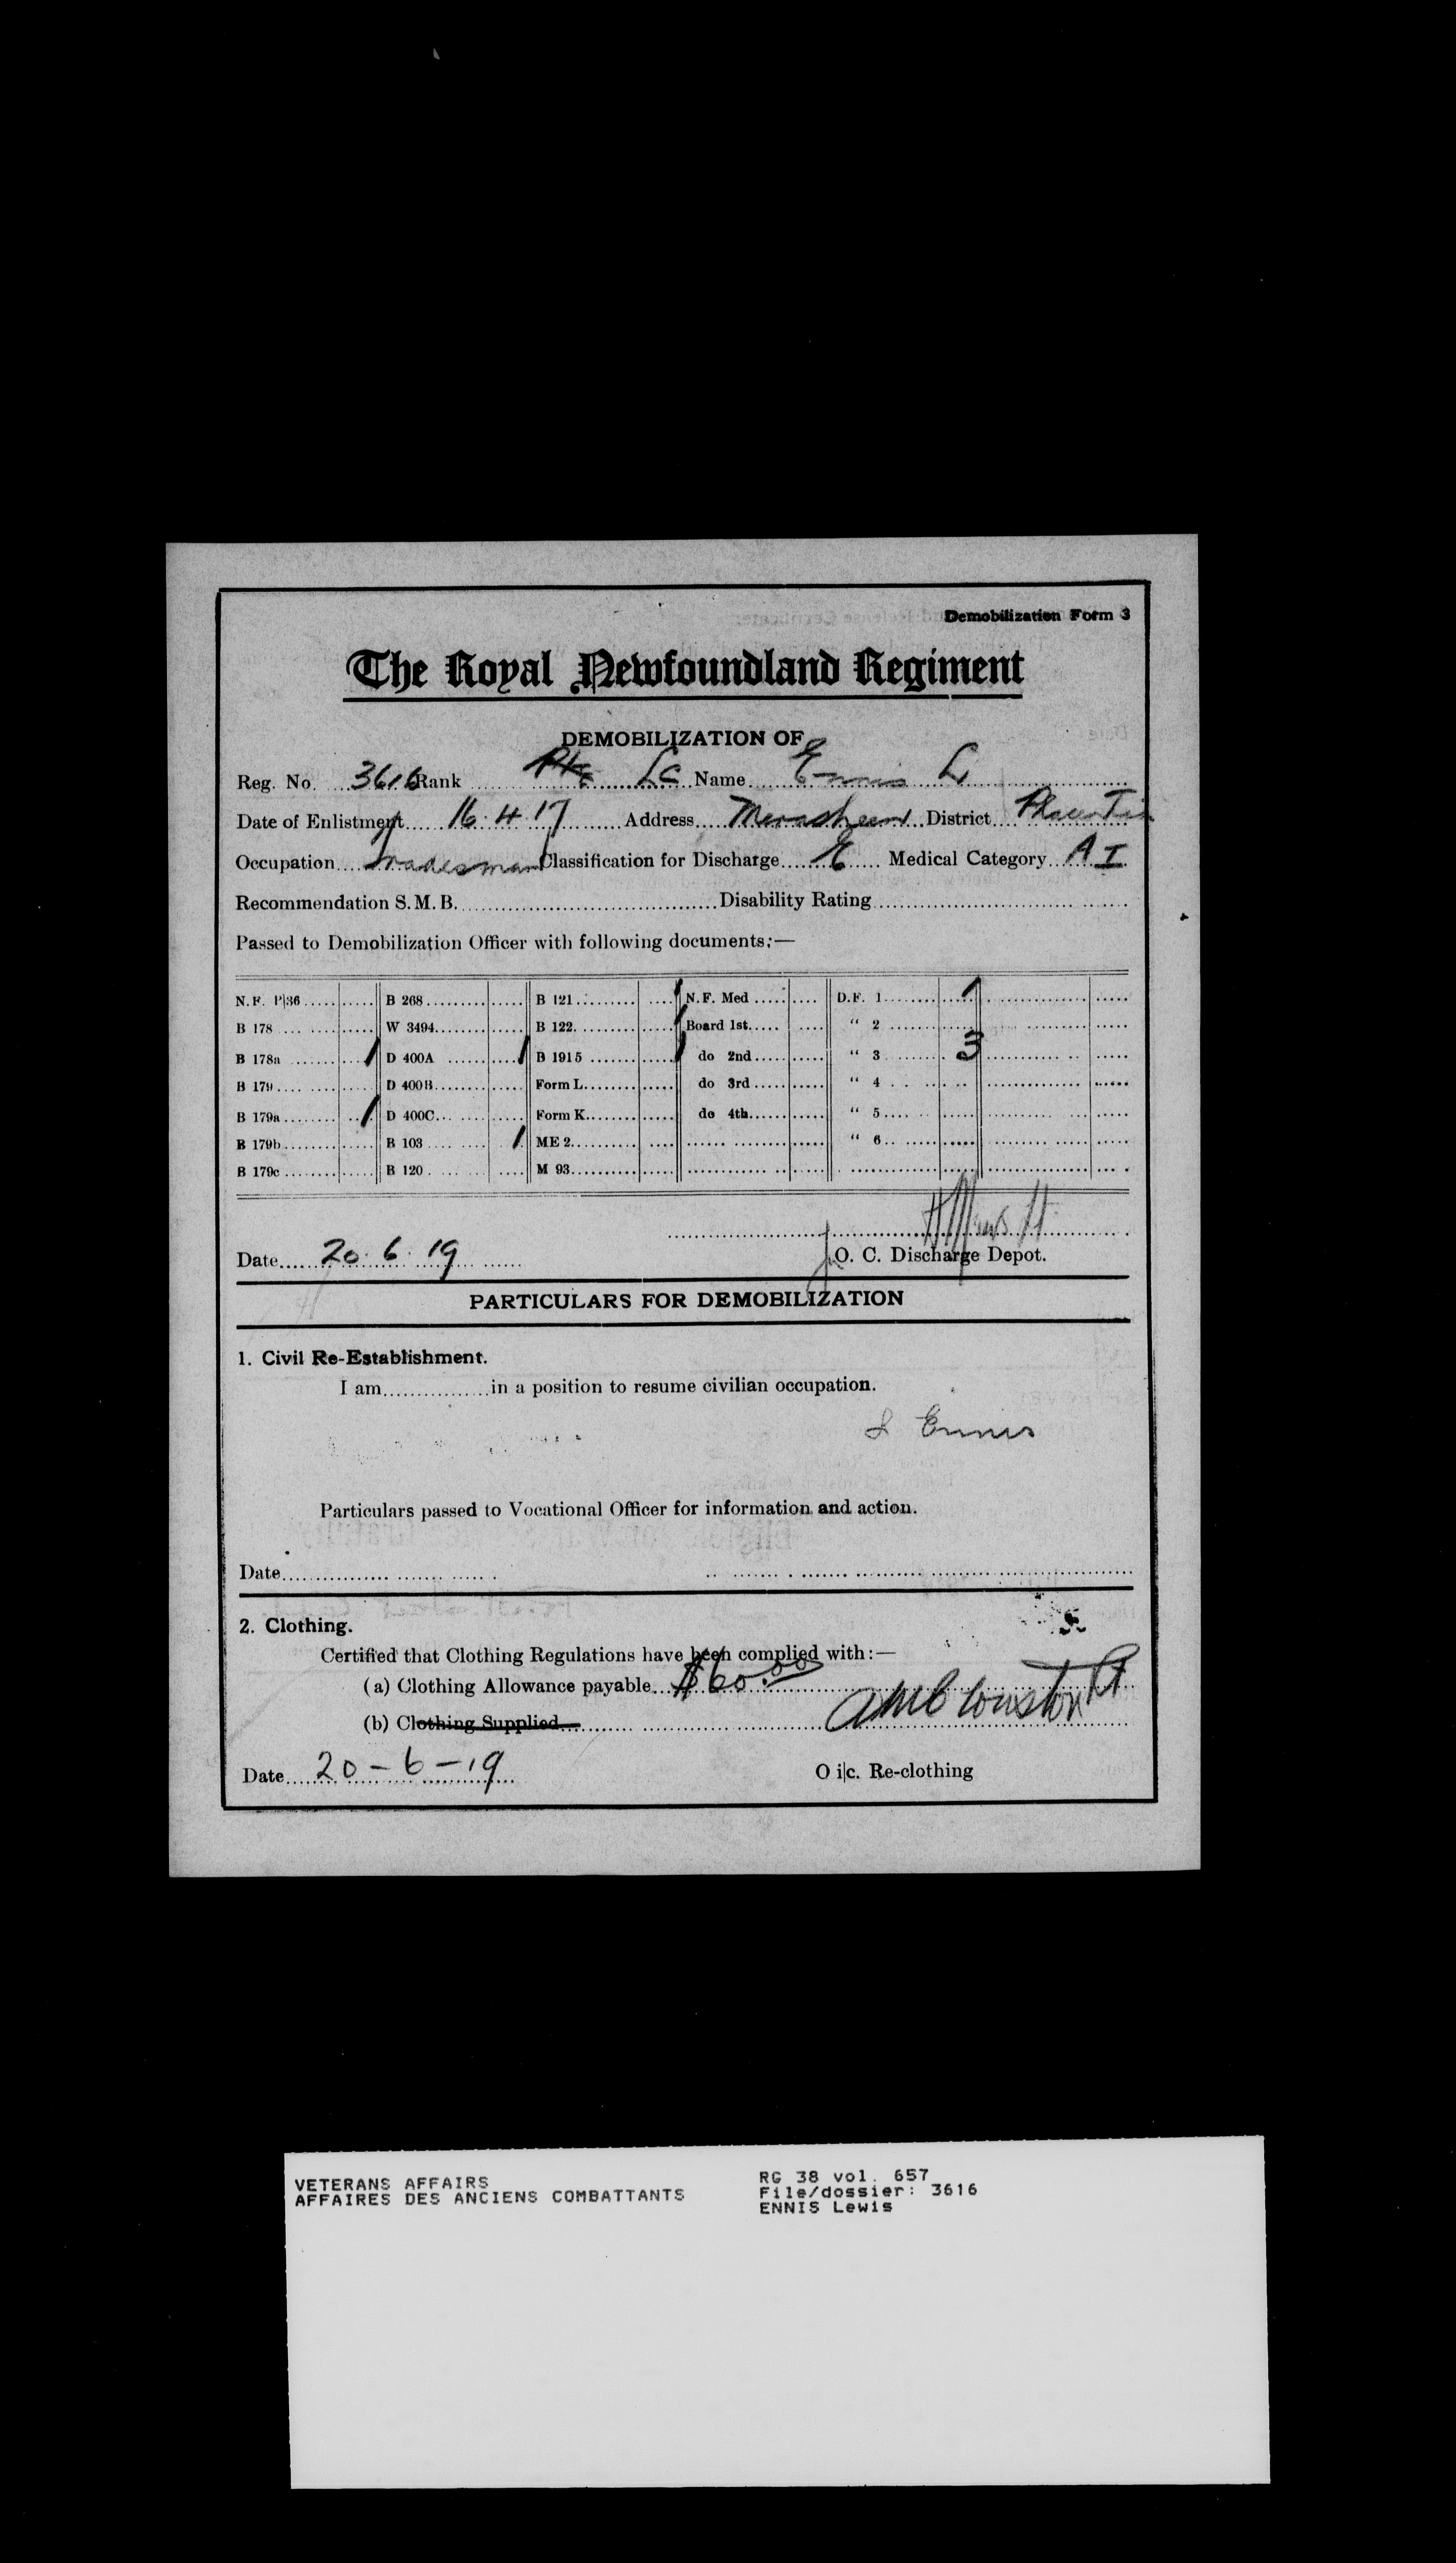 Demobilization Form 3
The Royal Newfoundland Regiment
DEMOBILIZATION OF
Reg. No. 3616 Rank Pte LC Name Ennis L
Date of Enlistment 16.4.17 Address Merasheen District Placentia
Occupation Tradesman Classification for Discharge E Medical Category A I
Recommendation S. M. B. Disability Rating
Passed to Demobilization Officer with following documents:—
N. F. P|36 B 268 B 121 / N. F. Med D.F. 1 1
B 178 W 3494 B 122 / Board 1st “ 2
B 178a / D 400A / B 1915 / do 2nd “ 3 3
B 179 D 400B Form L do 3rd “ 4
B 179a / D 400C Form K do 4th “ 5
B 179b B 103 / ME 2 “ 6
B 179c B 120 M 93
Date 20.6.19 O. C. Discharge Depot.
PARTICULARS FOR DEMOBILIZATION
1. Civil Re-Establishment.
I am in a position to resume civilian occupation.
L Ennis
Particulars passed to Vocational Officer for information and action.
Date
2. Clothing.
Certified that Clothing Regulations have been complied with:—
(a) Clothing Allowance payable $60.00
(b) Clothing Supplied
Date 20-6-19 O i|c. Re-clothing
VETERANS AFFAIRS RG 38 vol. 657
AFFAIRES DES ANCIENS COMBATTANTS File/dossier: 3616
ENNIS Lewis